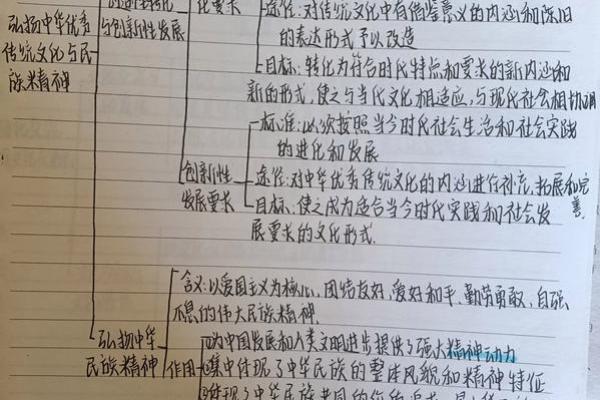 弘扬中华优秀
传统文化与民
族精神
创造性转化
与创新性发展
化要求
途径:对传统文化中有借鉴意义的内涵和陈旧
的表达形式予以改造
目标:转化为符合时代特点和要求的新内涵和
新的形式,使之与当代文化相适应,与现代社会相协调
创新性
发展要求
标准:必须按照当今时代社会生活和社会实践
的进化和发展
途径:对中华优秀传统文化的内涵进行补充,拓展和完
善
目标:使之成为适合当今时代实践和社会发
展要求的文化形式.
弘扬中华
民族精神
含义:以爱国主义为核心,团结友好,爱好和平,勤劳勇敢,自强
不息的伟大民族精神
作用
①为中国发展和人类文明进步提供了强大精神动力
②集中体现了中华民族的整体风貌和精神特征
③体现了中华民族共同的